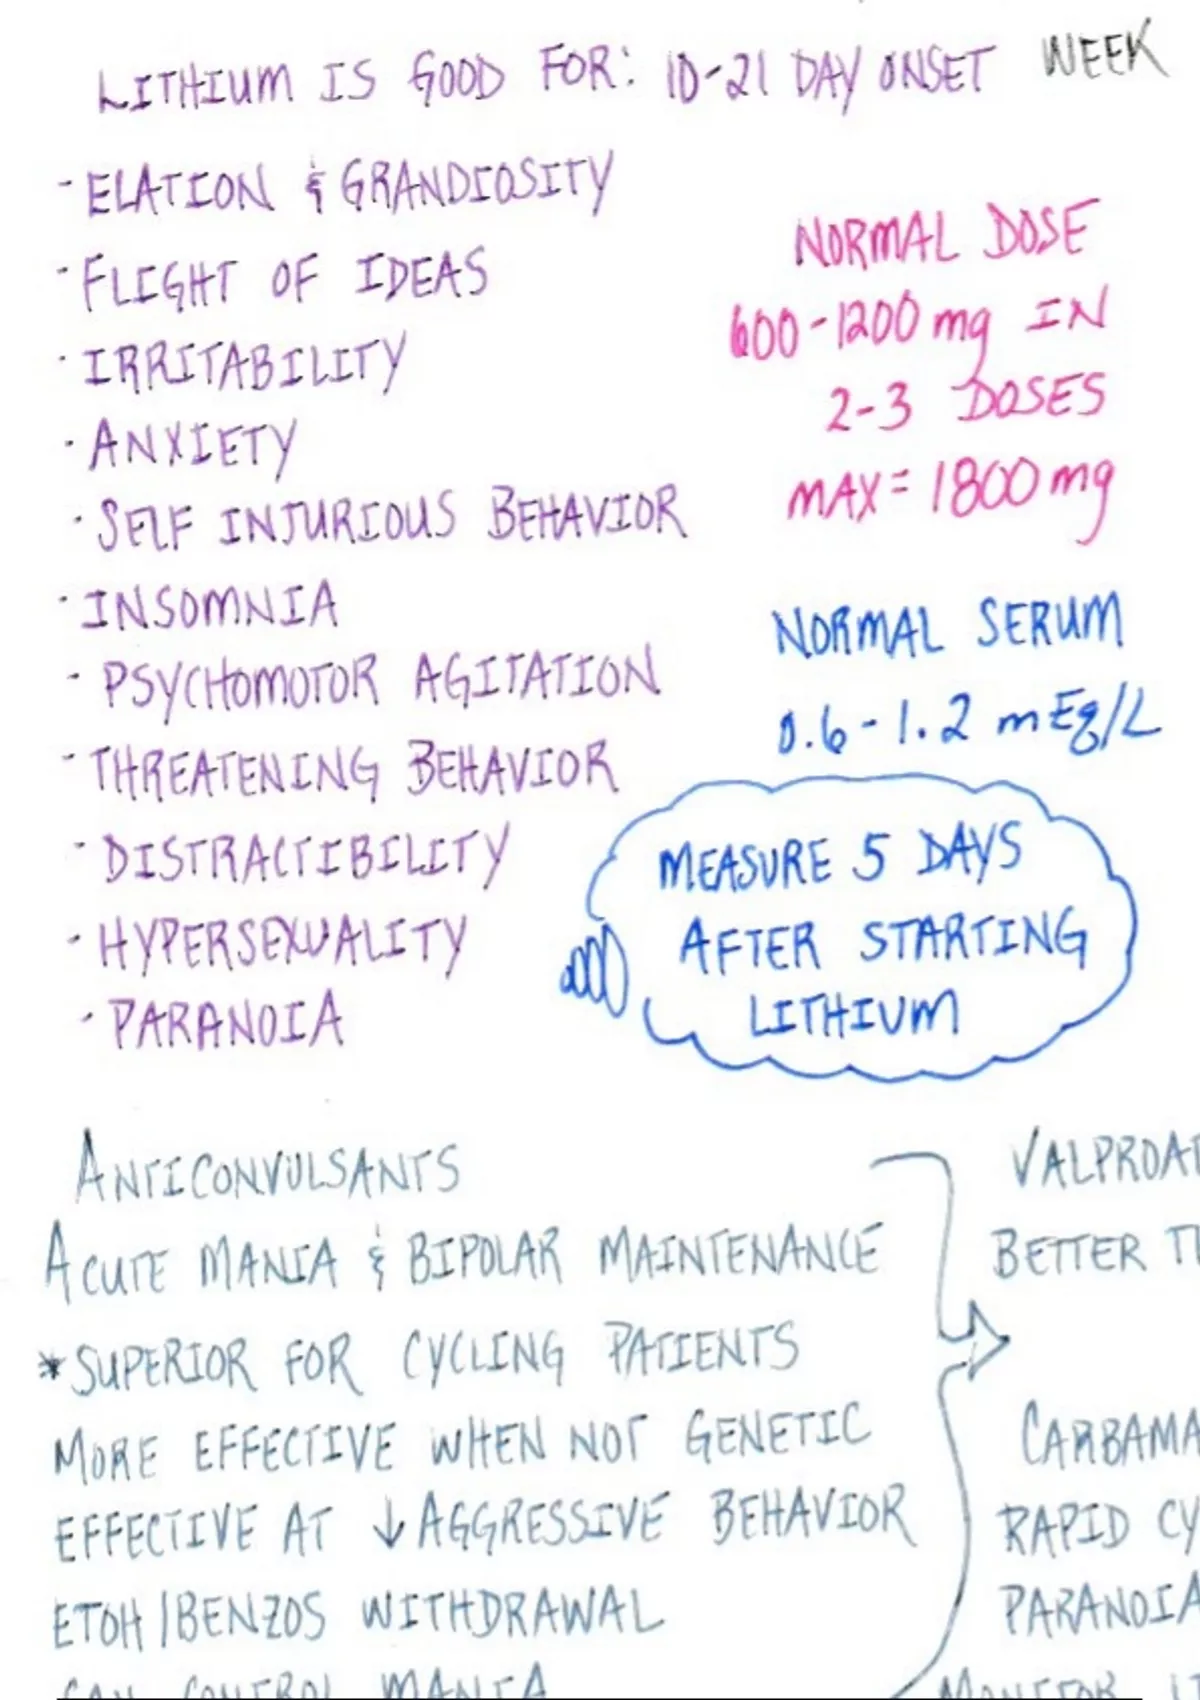 LITHIUM IS GOOD FOR: 10-21 DAY ONSET WEEK
- ELATION & GRANDIOSITY
- FLIGHT OF IDEAS
- IRRITABILITY
- ANXIETY
- SELF INJURIOUS BEHAVIOR
- INSOMNIA
- PSYCHOMOTOR AGITATION
- THREATENING BEHAVIOR
- DISTRACTIBILITY
- HYPERSEXUALITY
- PARANOIA
NORMAL DOSE
600-1200 mg IN
2-3 DOSES
MAX = 1800 mg
NORMAL SERUM
0.6-1.2 mEq/L
MEASURE 5 DAYS
AFTER STARTING
LITHIUM
ANTICONVULSANTS
ACUTE MANIA & BIPOLAR MAINTENANCE
*SUPERIOR FOR CYCLING PATIENTS
MORE EFFECTIVE WHEN NOT GENETIC
EFFECTIVE AT ↓ AGGRESSIVE BEHAVIOR
ETOH/BENZOS WITHDRAWAL
CAN CONTROL MANIA
VALPROAT
BETTER T
CARBAMA
RAPID CY
PARANOIA
MONITOR LI